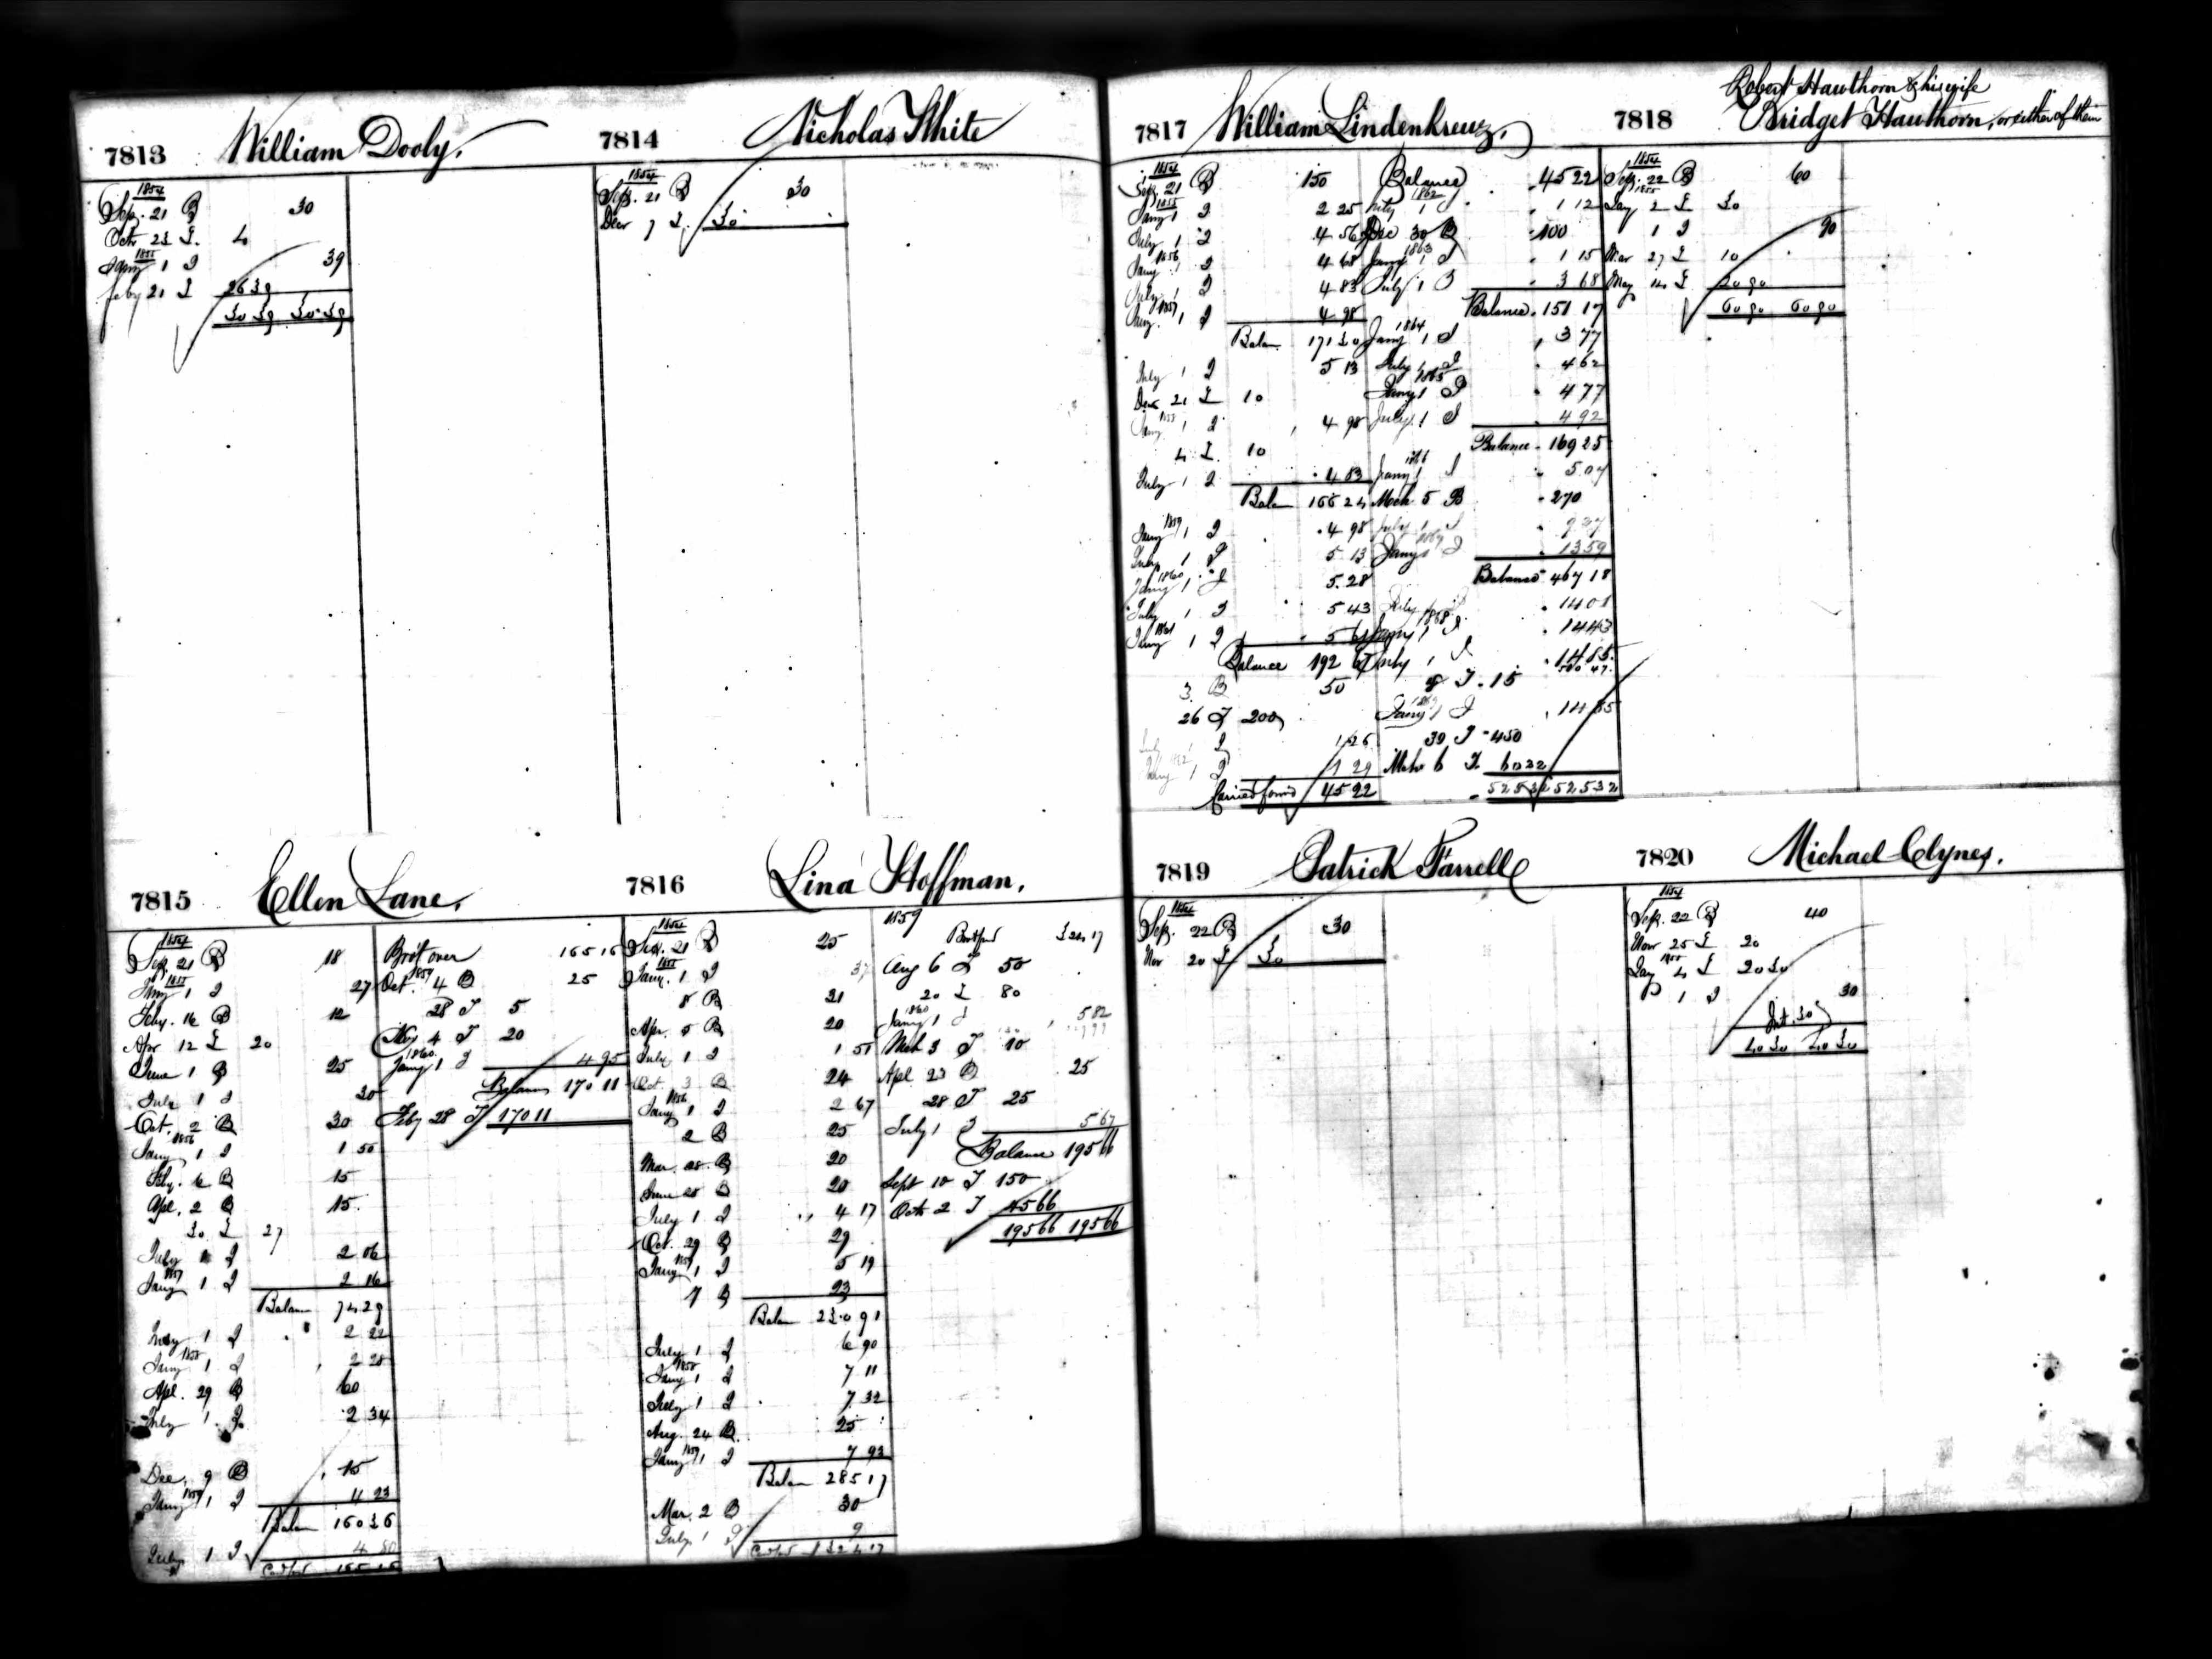 7813 William Dooly.
1854
Sep. 21 B 30
Octr 23 L 4
1855
Jany 1 I 39
Feby 21 L 26 39
30 39 30 39
7814 Nicholas White
1854
Sep. 21 B 30
Decr 7 L 30
7815 Ellen Lane.
1854
Sep. 21 B 18
1855
Jany 1 I 27
Feby. 16 B 12
Apr 12 L 20
June 1 B 25
July 1 I 20
Oct. 2 B 30
1856
Jany 1 I 1 50
Feby. 6 B 15
Apl. 2 B 15
30 L 27
July 1 I 2 06
1857
Jany 1 I 2 16
Balan 74 29
July 1 I 2 22
1858
Jany 1 I 2 28
Apl. 29 B 60
July 1 I 2 34
Dec. 9 B 15
1859
Jany 1 I 4 23
Balan 160 36
July 1 I 4 80
Cardford 165 16
Brot over 165 16
1859
Oct. 4 B 25
28 T 5
Nov 4 T 20
1860
Jany 1 I 4 95
Balance 170 11
Feby 28 T 170 11
7816 Lina Hoffman.
1854
Sep. 21 B 25
1855
Jany. 1 I 37
8 B 21
Apr. 5 B 20
July 1 I 1 51
Oct. 3 B 24
1856
Jany 1 I 2 67
2 B 25
Mar. 28 B 20
June 28 B 20
July 1 I 4 17
Oct. 29 B 29
1857
Jany 1 I 5 19
7 B 33
Balan 230 91
July 1 I 6 90
1858
Jany 1 I 7 11
July 1 I 7 32
Aug. 24 B 25
1859
Jany 1 I 7 93
Balan 285 17
Mar. 2 B 30
July 1 I 9
Cardford 324 17
1859
Brotford 324 17
Aug 6 L 50
20 L 80
1860
Jany 1 I 5 82
Mch 3 T 10
Apl 23 B 25
28 T 25
July 1 I 5 67
Balance 195 66
Sept 10 T 150
Octr 2 T 45 66
195 66 195 66
7817 William Lindenkreuz.
1854
Sep. 21 B 150
1855
Jany 1 I 2 25
July 1 I 4 56
1856
Jany 1 I 4 68
July 1 I 4 83
1857
Jany. 1 I 4 98
Balan 171 30
July 1 I 5 13
Decr 21 L 10
1858
Jany 1 I 4 98
4 L 10
July 1 I 4 83
Balan 166 24
1859
Jany 1 I 4 98
July 1 I 5 13
1860
Jany 1 I 5.28
July 1 I 5 43
1861
Jany 1 I 5 61
Balance 192 67
3 B 50
26 T 200
July 1 I 1 26
1862
Jany 1 I 1 29
Carried forwd 45 22
Balance 45 22
1862
July 1 I 1 12
Dec 30 B 100
1863
Jany 1 I 1 15
July 1 I 3 68
Balance 151 17
1864
Jany 1 I 3 77
July 1 I 4 62
1865
Jany 1 I 4 77
July 1 I 4 92
Balance 169 25
1866
Jany 1 I 5.07
Mch 5 B 270
July 1 I 9 27
1867
Jany 1 I 13 59
Balance 467 18
July 1 I 14 01
1868
Jany 1 I 14 43
July 1 I 14 85
510 47
8 T 15
1869
Jany 1 I 14 85
30 T 450
Mch 6 T 60 32
525 32 525 32
7818 Robert Hawthorn & his wife
Bridget Hawthorn, or either of them
1854
Sep. 22 B 60
1855
Jany 2 L 30
1 I 90
Mar 27 L 10
May 14 L 20 90
60 90 60 90
7819 Patrick Farrell
1854
Sep. 22 B 30
Nov 20 L 30
7820 Michael Clynes.
1854
Sep. 22 B 40
Novr 25 L 20
1855
Jany 4 L 20 30
1 I 30
Int. 30
40 30 40 30